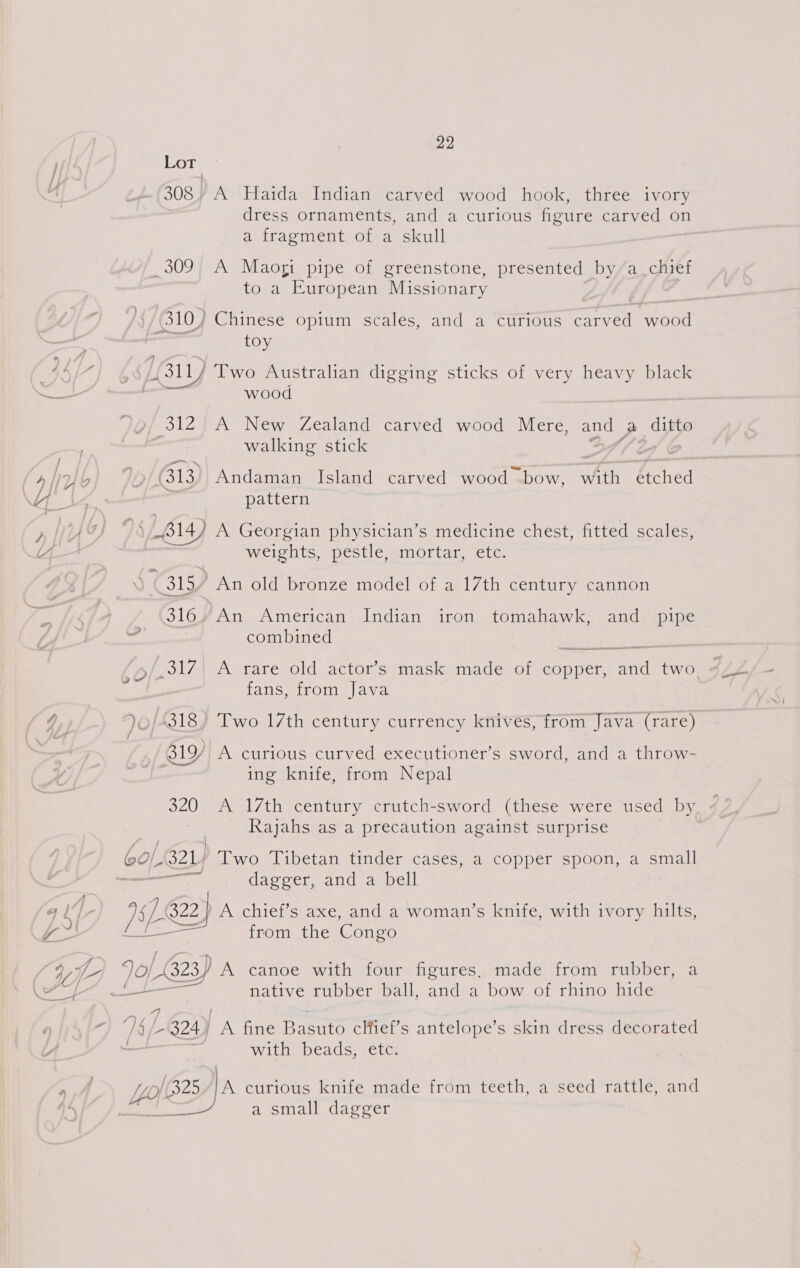 22
LOT
308 A Haida Indian carved wood hook, three ivory
dress ornaments, and a curious figure carved on
a fragment of a skull
309 A Maori pipe of greenstone, presented by a chief
to a European Missionary
310 Chinese opium scales, and a curious carved wood
toy
311 Two Australian digging sticks of very heavy black
wood
312 A New Zealand carved wood Mere, and a ditto
walking stick
313 Andaman Island carved wood bow, with etched
pattern
314 A Georgian physician's medicine chest, fitted scales,
weights, pestle, mortar, etc.
315 An old bronze model of a 17th century cannon
316 An American Indian iron tomahawk, and pipe
combined
317 A rare old actor's mask made of copper, and two
fans, from Java
318 Two 17th century currency knives, from Java (rare)
319 A curious curved executioner's sword, and a throw-
ing knife, from Nepal
320 A 17th century crutch-sword (these were used by
Rajahs as a precaution against surprise
60/ 321 Two Tibetan tinder cases, a copper spoon, a small
dagger, and a bell
322 A chief's axe, and a woman's knife, with ivory hilts,
from the Congo
323 A canoe with four figures, made from rubber, a
native rubber ball, and a bow of rhino hide
324 A fine Basuto chief's antelope's skin dress decorated
with beads, etc.
325 A curious knife made from teeth, a seed rattle, and
a small dagger